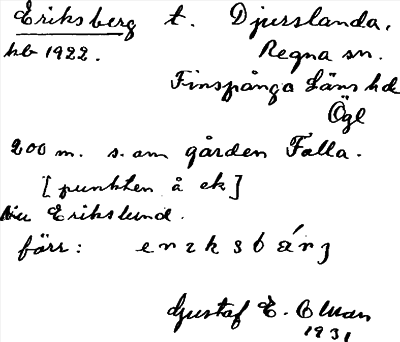 Eriksberg t. Djurslanda,
hb 1922. Regna sn.
Finspånga Läns hd
Ögl
200 m. s. om gården Falla.
[punkten å ek]
Nu Erikslund.
förr:
Gustaf E. Ellman
1931